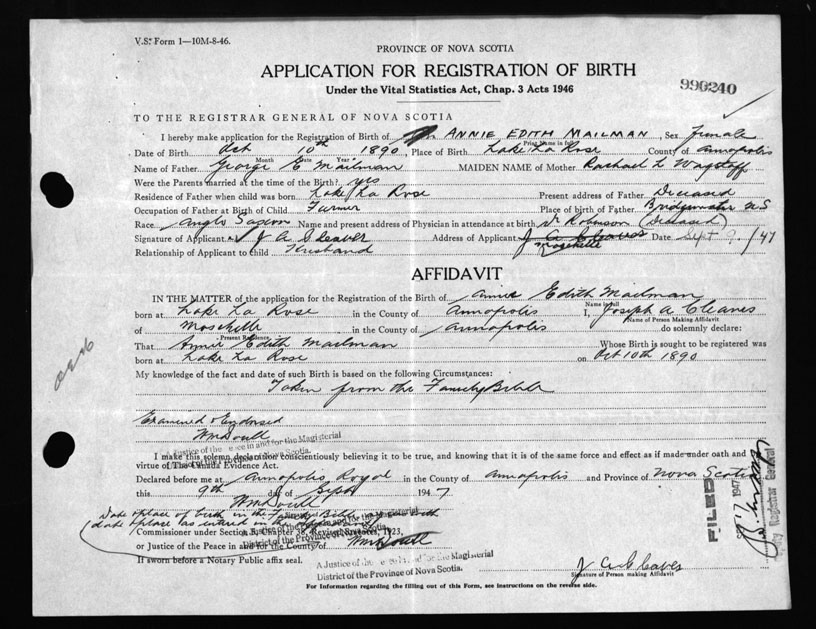 V.S. Form 1—10M-8-46.
PROVINCE OF NOVA SCOTIA
APPLICATION FOR REGISTRATION OF BIRTH
990240
Under the Vital Statistics Act, Chap. 3 Acts 1946
TO THE REGISTRAR GENERAL OF NOVA SCOTIA
I hereby make application for the Registration of Birth of ANNIE EDITH MAILMAN, Sex female
Print Name in full
Date of Birth Oct 10th 1890, Place of Birth Lake La Rose County of Annapolis
Month Date Year
Name of Father George E Mailman MAIDEN NAME of Mother Rachael L Wagstaff
Were the Parents married at the time of the Birth? yes
Residence of Father when child was born Lake La Rose Present address of Father Deceased
Occupation of Father at Birth of Child Farmer Place of birth of Father Bridgewater N S
Race Anglo Saxon Name and present address of Physician in attendance at birth Dr Robinson (Deceased)
Signature of Applicant J A Cleaves Address of Applicant J A Cleaves Date Sept 9/47
Moschelle
Relationship of Applicant to child Husband
AFFIDAVIT
IN THE MATTER of the application for the Registration of the Birth of Annie Edith Mailman
Name in full
born at Lake La Rose in the County of Annapolis I, Joseph A Cleaves
Name of Person Making Affidavit
of Moschelle in the County of Annapolis do solemnly declare:
Present Residence
That Annie Edith Mailman Whose Birth is sought to be registered was
born at Lake La Rose on Oct 10th 1890
My knowledge of the fact and date of such Birth is based on the following Circumstances:
Taken from the Family Bible
Examined & Endorsed
A Justice of the Peace in and for the Magisterial
District of the Province of Nova Scotia.
I make this solemn declaration conscientiously believing it to be true, and knowing that it is of the same force and effect as if made under oath and
virtue of The Canada Evidence Act.
Declared before me at Annapolis Royal in the County of Annapolis and Province of Nova Scotia
this 9th day of Sept 1947
Date & place of birth in the Family Bible
Commissioner under Section Chapter 38, Revised Statutes, 1923,
or Justice of the Peace in and for the County of
A Justice of the Peace in and for the Magisterial
District of the Province of Nova Scotia.
If sworn before a Notary Public affix seal.
A Justice of the Peace in and for the Magisterial
District of the Province of Nova Scotia.
J A Cleaves
Signature of Person making Affidavit
For Information regarding the filling out of this Form, see instructions on the reverse side.
FILED
1947
Deputy Registrar General